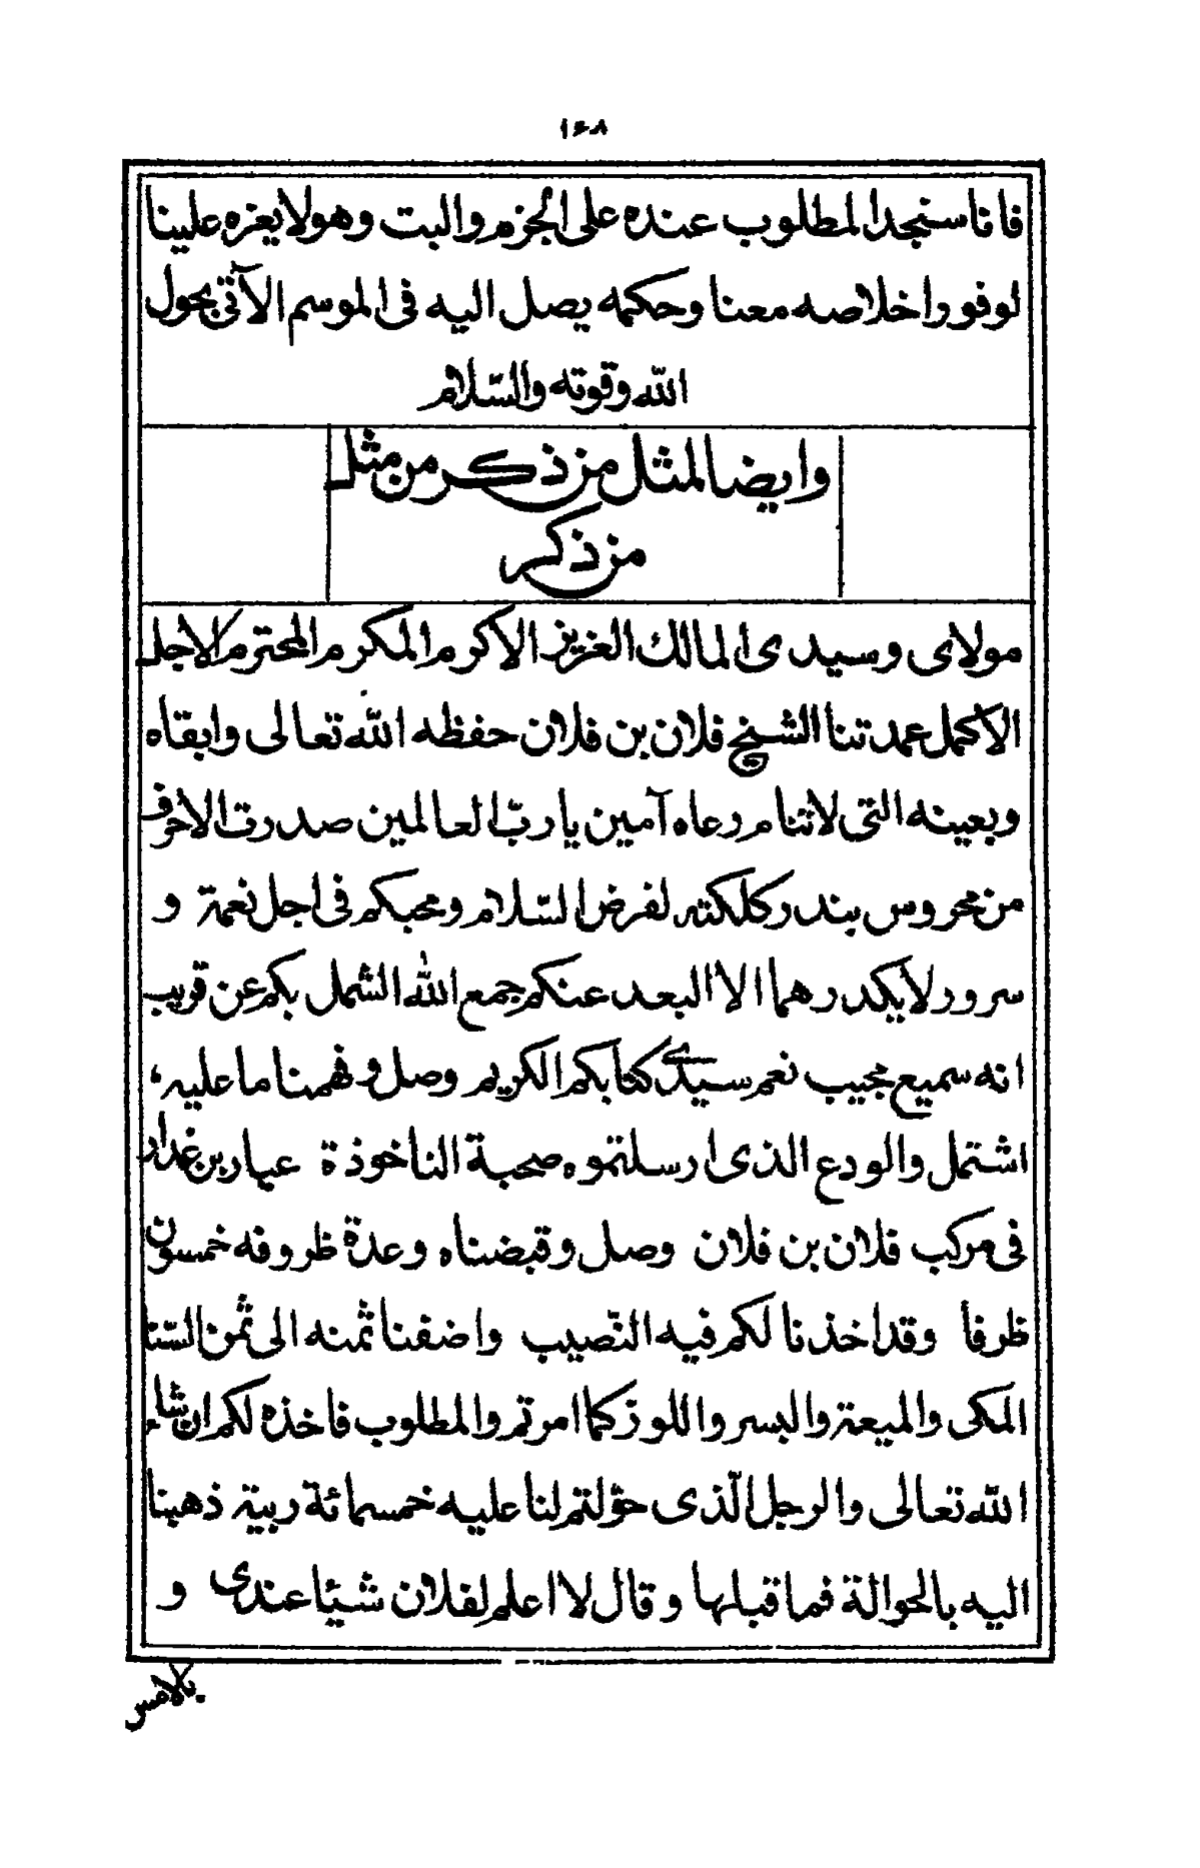 ١٦٨
فانا سنجد المطلوب عنده على الجزم والبت وهو لا يعزه علينا
لوفور اخلاصه معنا وحكمه يصل اليه فى الموسم الآتى بحول
الله وقوته والسّلام
وايضا لمثل من ذكر من مثل
من ذكر
مولاى وسيدى المالك العزيز الاكرم المكرم المحترم الاجل
الاكمل عمدتنا الشيخ فلان بن فلان حفظه الله تعالى وابقاه
وبعينه التى لا تنام رعاه آمين يا ربّ العالمين صدرت الاحرف
من محروس بندر كلكته لفرض السّلام ومحبكم فى اجل نعمة و
سرور لا يكدرهما الا البعد عنكم جمع الله الشمل بكم عن قريب
انه سميع مجيب نعم سيدى كتابكم الكريم وصل وفهمنا ما عليه
اشتمل والودع الذى ارسلتموه صحبة الناخوذة عيار بن غدار
فى مركب فلان بن فلان وصل وقبضناه وعدة ظروفه خمسون
ظرفا وقد اخذنا لكم فيه النّصيب واضفنا ثمنه الى ثمن السّنا
المكى والميعة والبسر واللوز كما امرتم والمطلوب فاخذه لكم ان شاء
الله تعالى والرجل الّذى حوّلتم لنا عليه خمسمائة ربية ذهبنا
اليه بالحوالة فما قبلها وقال لا اعلم لفلان شيئا عندى و
بالامس